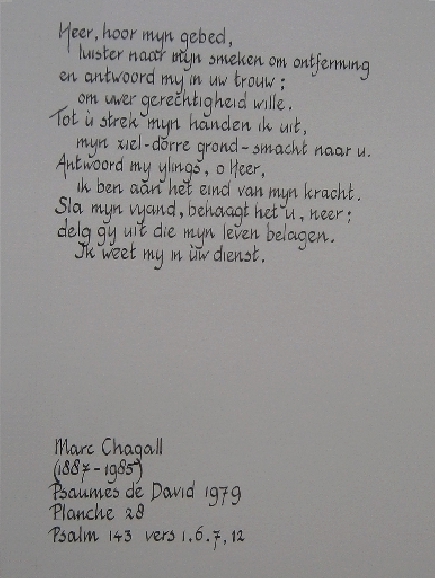 Heer, hoor mijn gebed,
luister naar mijn smeken om ontferming
en antwoord mij in uw trouw;
om uwer gerechtigheid wille.
Tot ù strek mijn handen ik uit,
mijn ziel-dorre grond-smacht naar u.
Antwoord mij ylings, o Heer,
ik ben aan het eind van mijn kracht.
Sla mijn vyand, behaagt het u, neer;
delg gij uit die mijn leven belagen.
Ik weet mij in ùw dienst.
Marc Chagall
(1887-1985)
Psaumes de David 1979
Planche 28
Psalm 143 vers 1.6.7,12